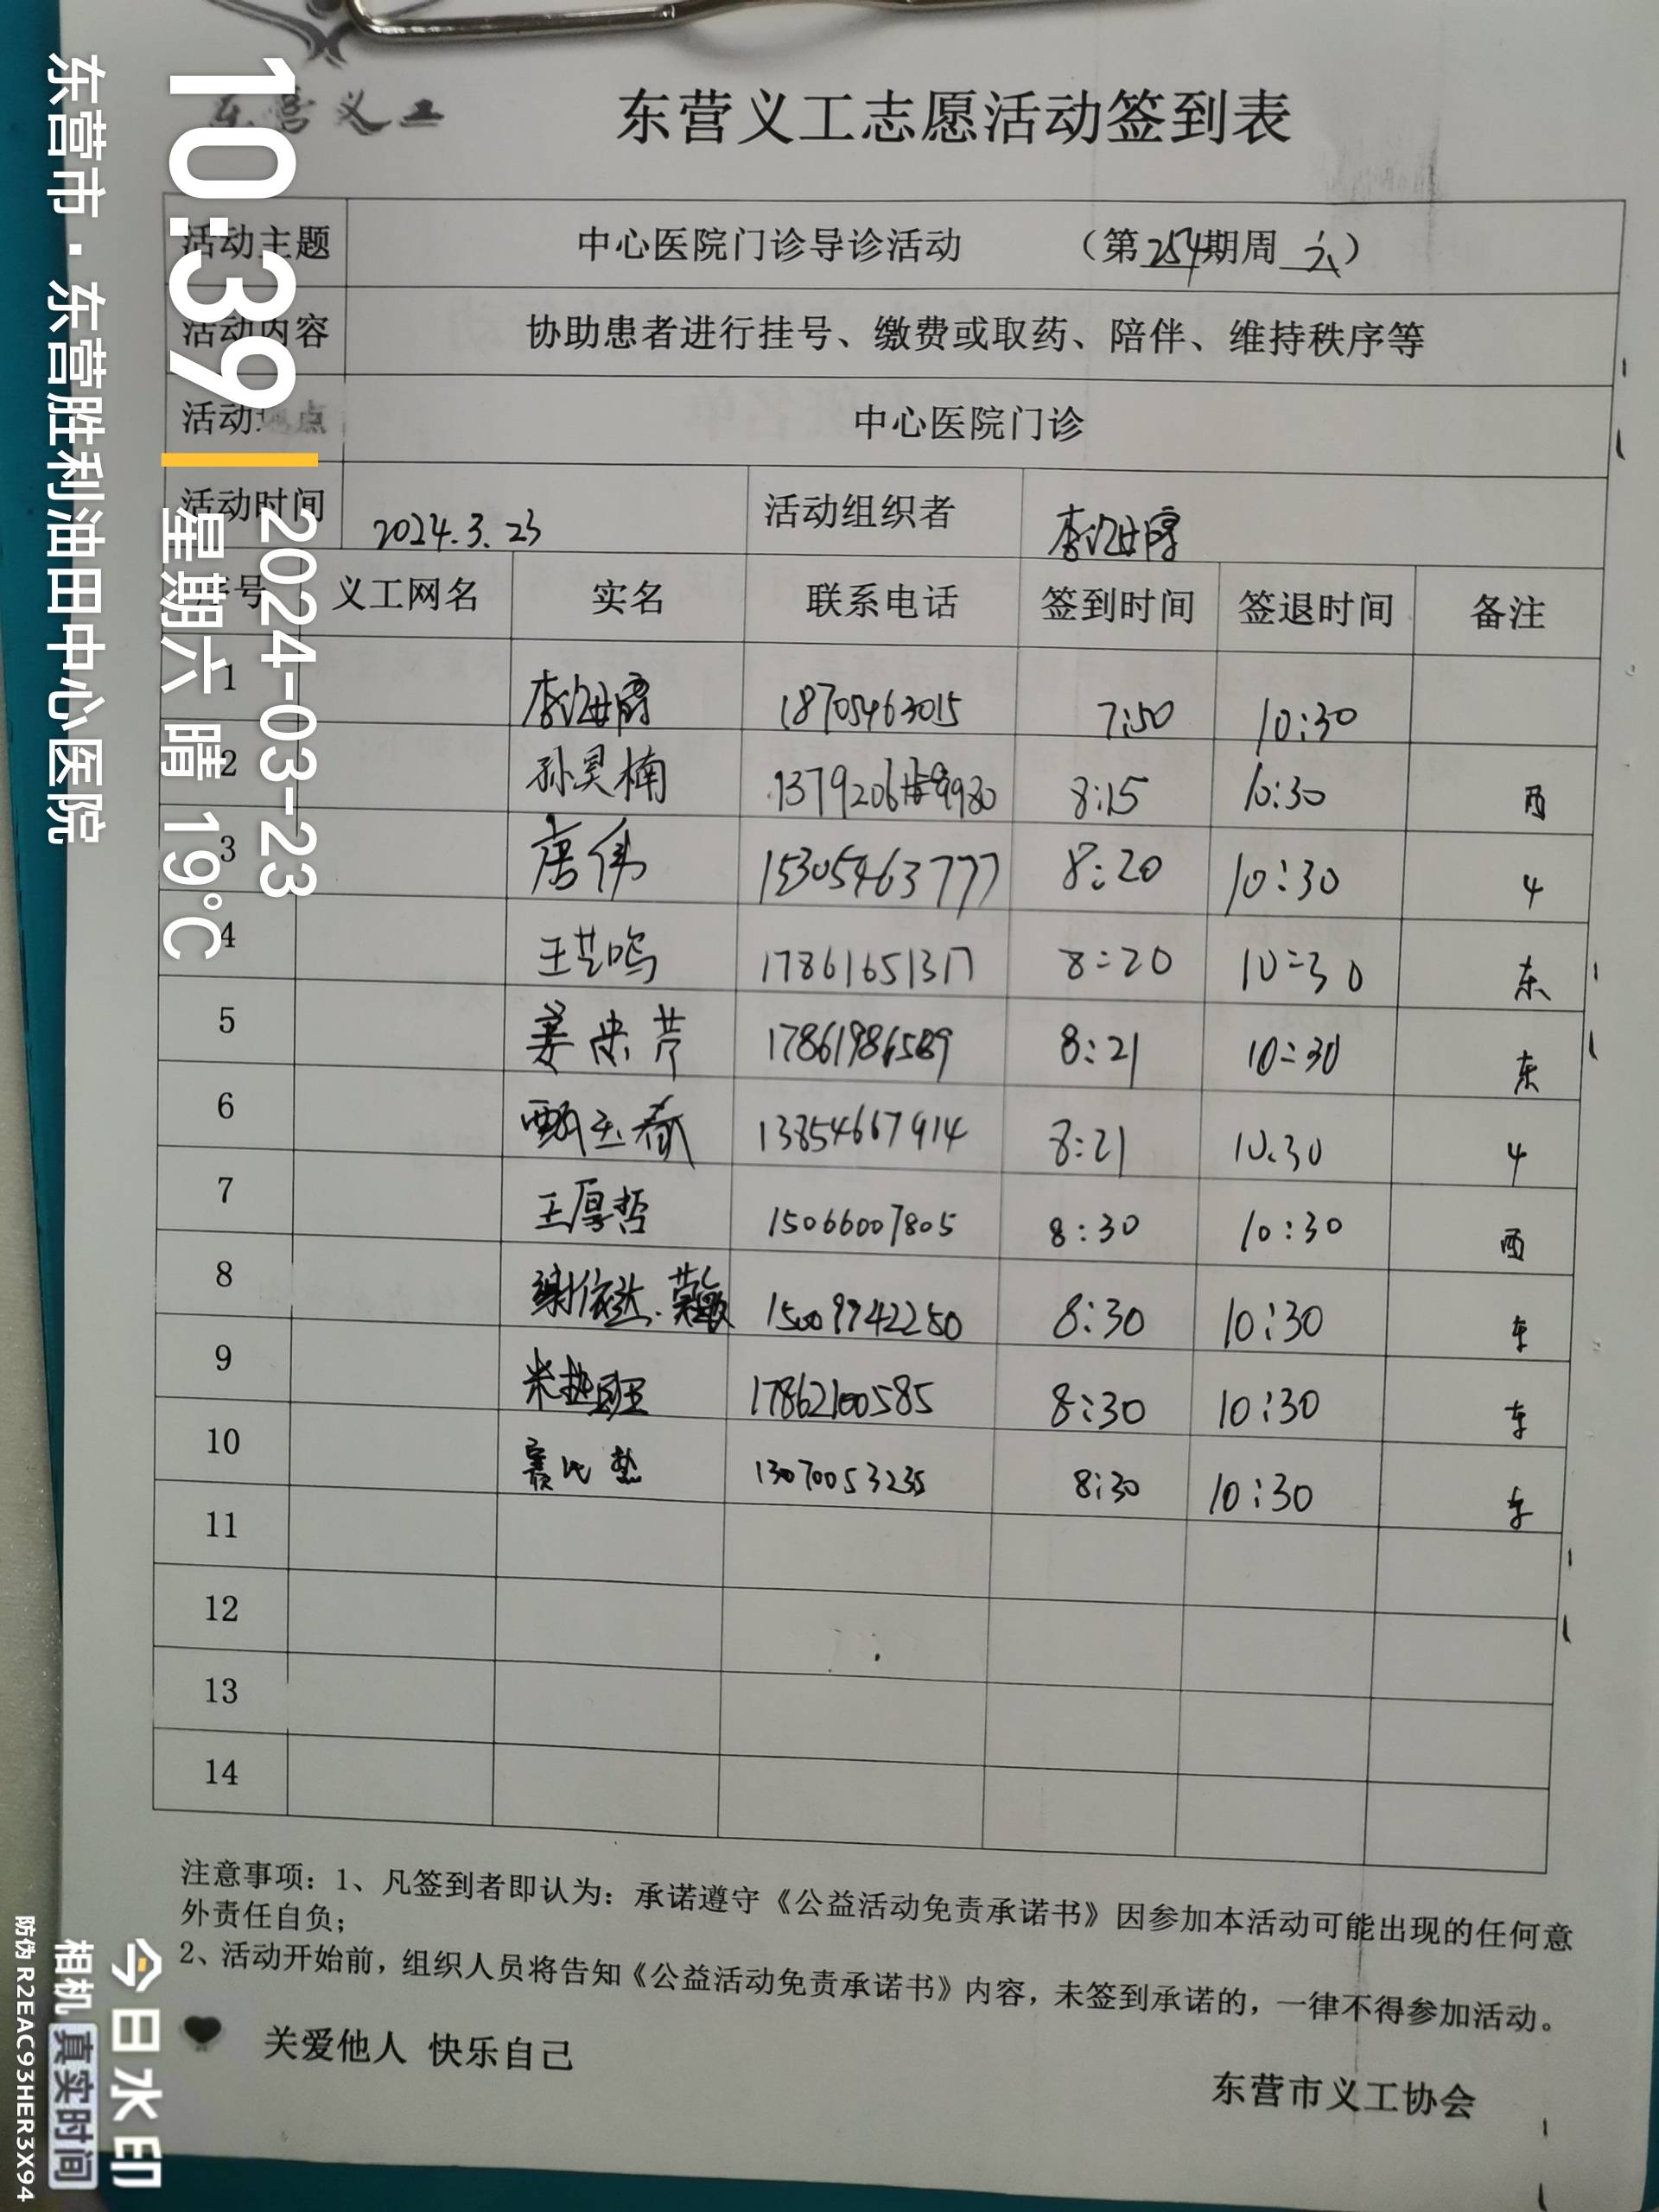 东营义工
东营义工志愿活动签到表
活动主题 中心医院门诊导诊活动 （第254期周六）
活动内容 协助患者进行挂号、缴费或取药、陪伴、维持秩序等
活动地点 中心医院门诊
活动时间 2024.3.23 活动组织者 李
序号 义工网名 实名 联系电话 签到时间 签退时间 备注
1 李 18705463015 7:50 10:30
2 孙昊楠 8:15 10:30 西
3 唐伟 15305463777 8:20 10:30 4
4 王芸鸣 17861651317 8:20 10:30 东
5 姜 芹 17861986589 8:21 10:30 东
6 甄玉春 13854667914 8:21 10:30 4
7 王厚哲 15066007805 8:30 10:30 西
8 谢依达. 15009742250 8:30 10:30 东
9 米热班 17862100585 8:30 10:30 东
10 赛比热 13070053235 8:30 10:30 东
11
12
13
14
注意事项：1、凡签到者即认为：承诺遵守《公益活动免责承诺书》因参加本活动可能出现的任何意
外责任自负；
2、活动开始前，组织人员将告知《公益活动免责承诺书》内容，未签到承诺的，一律不得参加活动。
关爱他人 快乐自己
东营市义工协会
10:39
2024-03-23
星期六 晴 19℃
东营市·东营胜利油田中心医院
今日水印
相机 真实时间
防伪 R2EAC93HER3X94